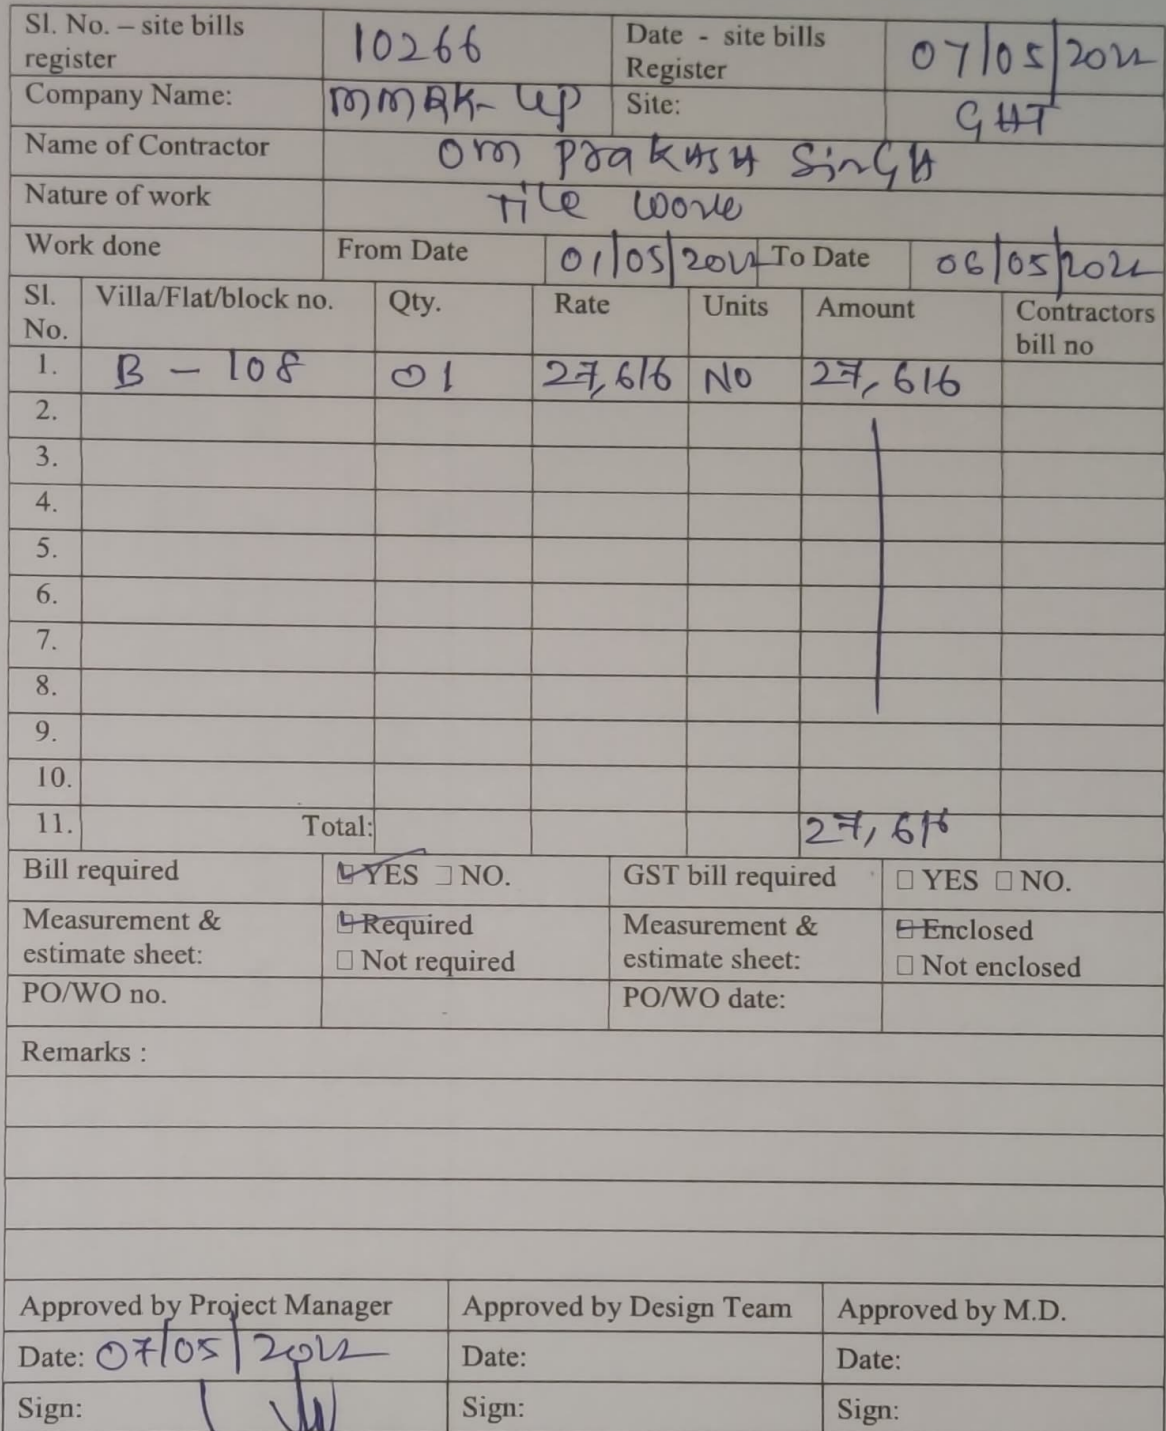 Sl. No. – site bills register 10266 Date - site bills Register 07/05/2022
Company Name: MMRK-UP Site: GHT
Name of Contractor Om PraKASH SinGH
Nature of work Tile work
Work done From Date 01/05/2022 To Date 06/05/2022
Sl. No. Villa/Flat/block no. Qty. Rate Units Amount Contractors bill no
1. B - 108 01 27,616 NO 27,616
2.
3.
4.
5.
6.
7.
8.
9.
10.
11. Total: 27,616
Bill required ☑ YES ☐ NO. GST bill required ☐ YES ☐ NO.
Measurement & estimate sheet: ☑ Required ☐ Not required Measurement & estimate sheet: ☑ Enclosed ☐ Not enclosed
PO/WO no. PO/WO date:
Remarks :
Approved by Project Manager Approved by Design Team Approved by M.D.
Date: 07/05/2022 Date: Date:
Sign: Sign: Sign: